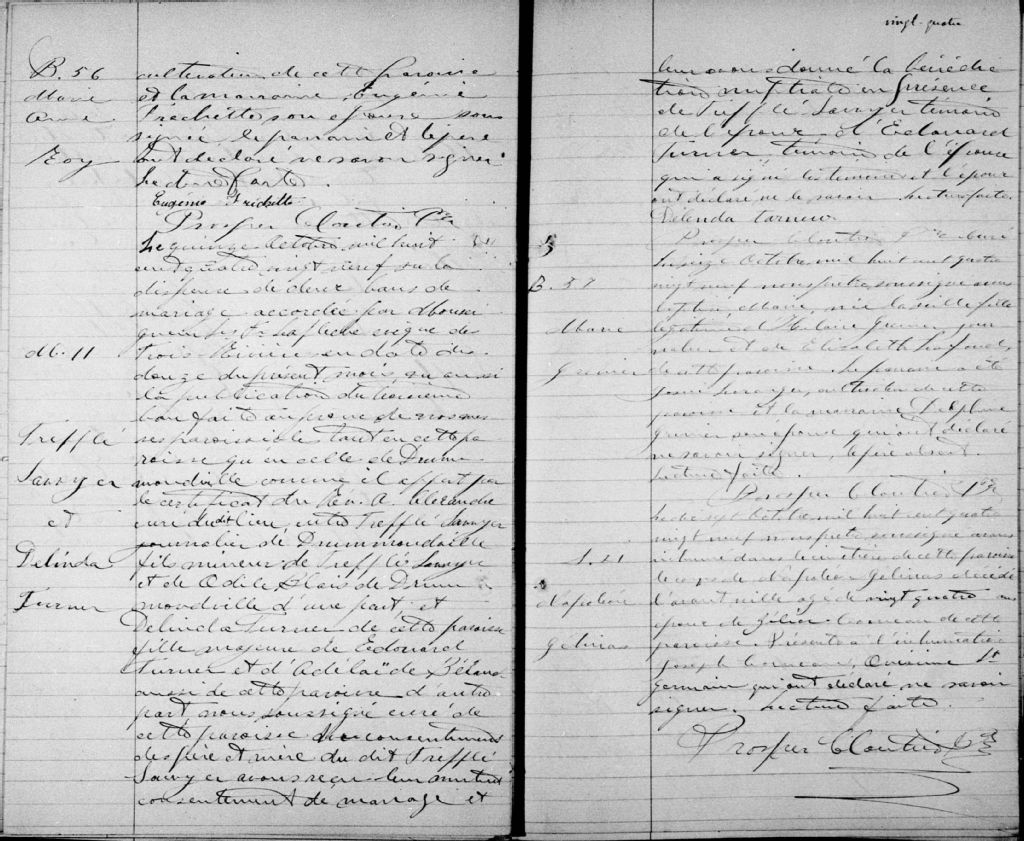 B. 56
Marie
Anne
Roy
cultivateur de cette paroisse
et la marraine Eugénie
Fréchette son épouse sous
signée, le parrain et le père
ont déclaré ne savoir signer
Lecture faite.
Eugénie Frichette
Prosper Cloutier Ptre
M. 11
Trefflé
Sawyer
et
Delinda
Turner
Le quinze Octobre mil huit
cent quatre vingt neuf vu la
dispense de deux bans de
mariage accordée par Monsei
gneur L. F. Laflèche évêque des
Trois Rivières en date du
douze du présent mois, vu aussi
la publication du troisième
ban faite au prône de nos mes
ses paroissiales tant en cette pa
roisse qu'en celle de Drum
mondville comme il appert par
le certificat du Rev. A. Alexandre
curé du dit lieu, entre Trefflé Sawyer
journalier de Drummondville
fils mineur de Trefflé Sawyer
et de Odile Blais de Drum
mondville d'une part, et
Delinda Turner de cette paroisse
fille majeure de Edouard
Turner et d'Adélaïde Béland
aussi de cette paroisse d'autre
part, nous soussigné curé de
cette paroisse du consentement
des père et mère du dit Trefflé
Sawyer avons reçu leur mutuel
consentement de mariage et
vingt-quatre
leur avons donné la bénédic
tion nuptiale en présence
de Trefflé Sawyer témoin
de l'époux et d'Edouard
Turner témoin de l'épouse
qui a signé les témoins et l'époux
ont déclaré ne le savoir. Lecture faite
Delenda Turner
Prosper Cloutier Ptre Curé
B. 57
Marie
Grenier
Le seize Octobre mil huit cent quatre
vingt neuf nous prêtre soussigné avons
baptisé Marie, née la veille fille
légitime d'Hilaire Grenier jour
nalier et de Elisabeth Lafond
de cette paroisse. Le parrain a été
cultivateur de cette
paroisse et la marraine Delphine
Grenier son épouse qui ont déclaré
ne savoir signer, le père absent.
Lecture faite.
Prosper Cloutier Ptre
S. 21
Napoléon
Gélinas
Le dix sept Octobre mil huit cent quatre
vingt neuf nous prêtre soussigné avons
inhumé dans le cimetière de cette paroisse
le corps de Napoléon Gélinas décédé
l'avant veille agé de vingt quatre ans
époux de de cette
paroisse. Présents à l'inhumation
Joseph St
Germain qui ont déclaré ne savoir
signer. Lecture faite.
Prosper Cloutier Ptre